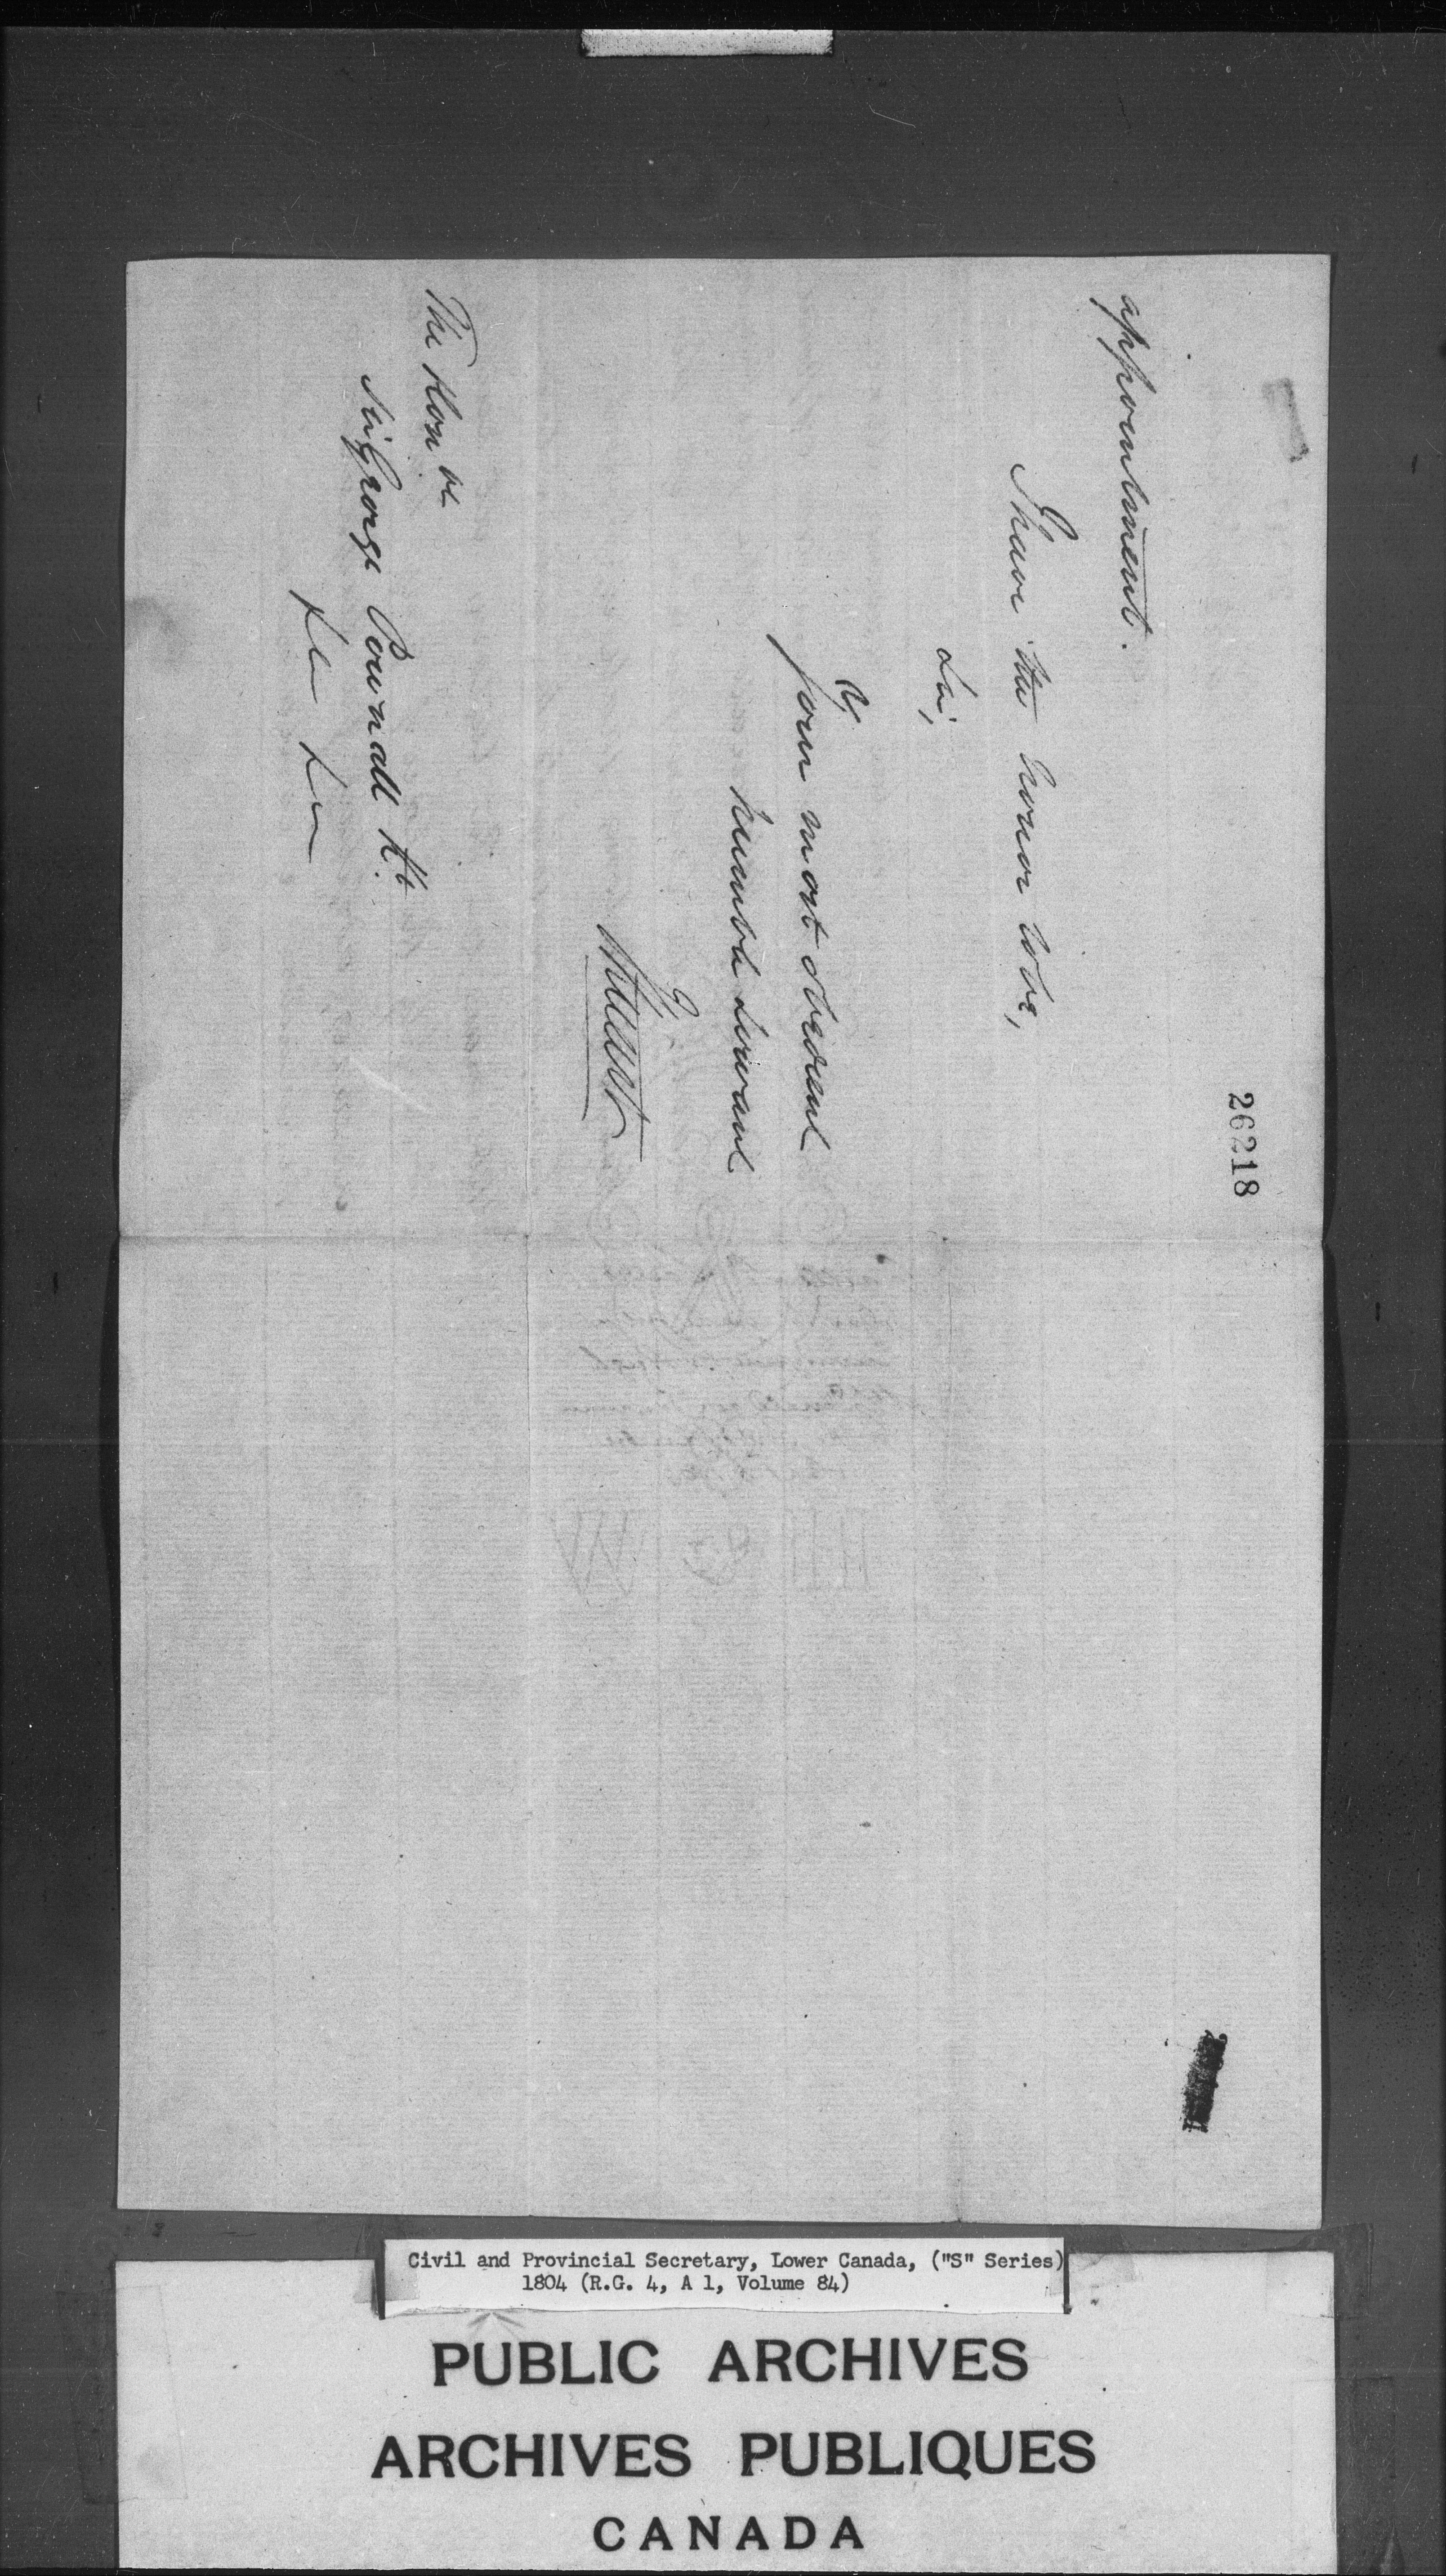 26218
appointment.
I have the honor to be,
Sir,
Your most obedient
humble servant
The Honble
Sir George Pownall Kt.
&c &c
Civil and Provincial Secretary, Lower Canada, ("S" Series)
1804 (R.G. 4, A 1, Volume 84)
PUBLIC ARCHIVES
ARCHIVES PUBLIQUES
CANADA